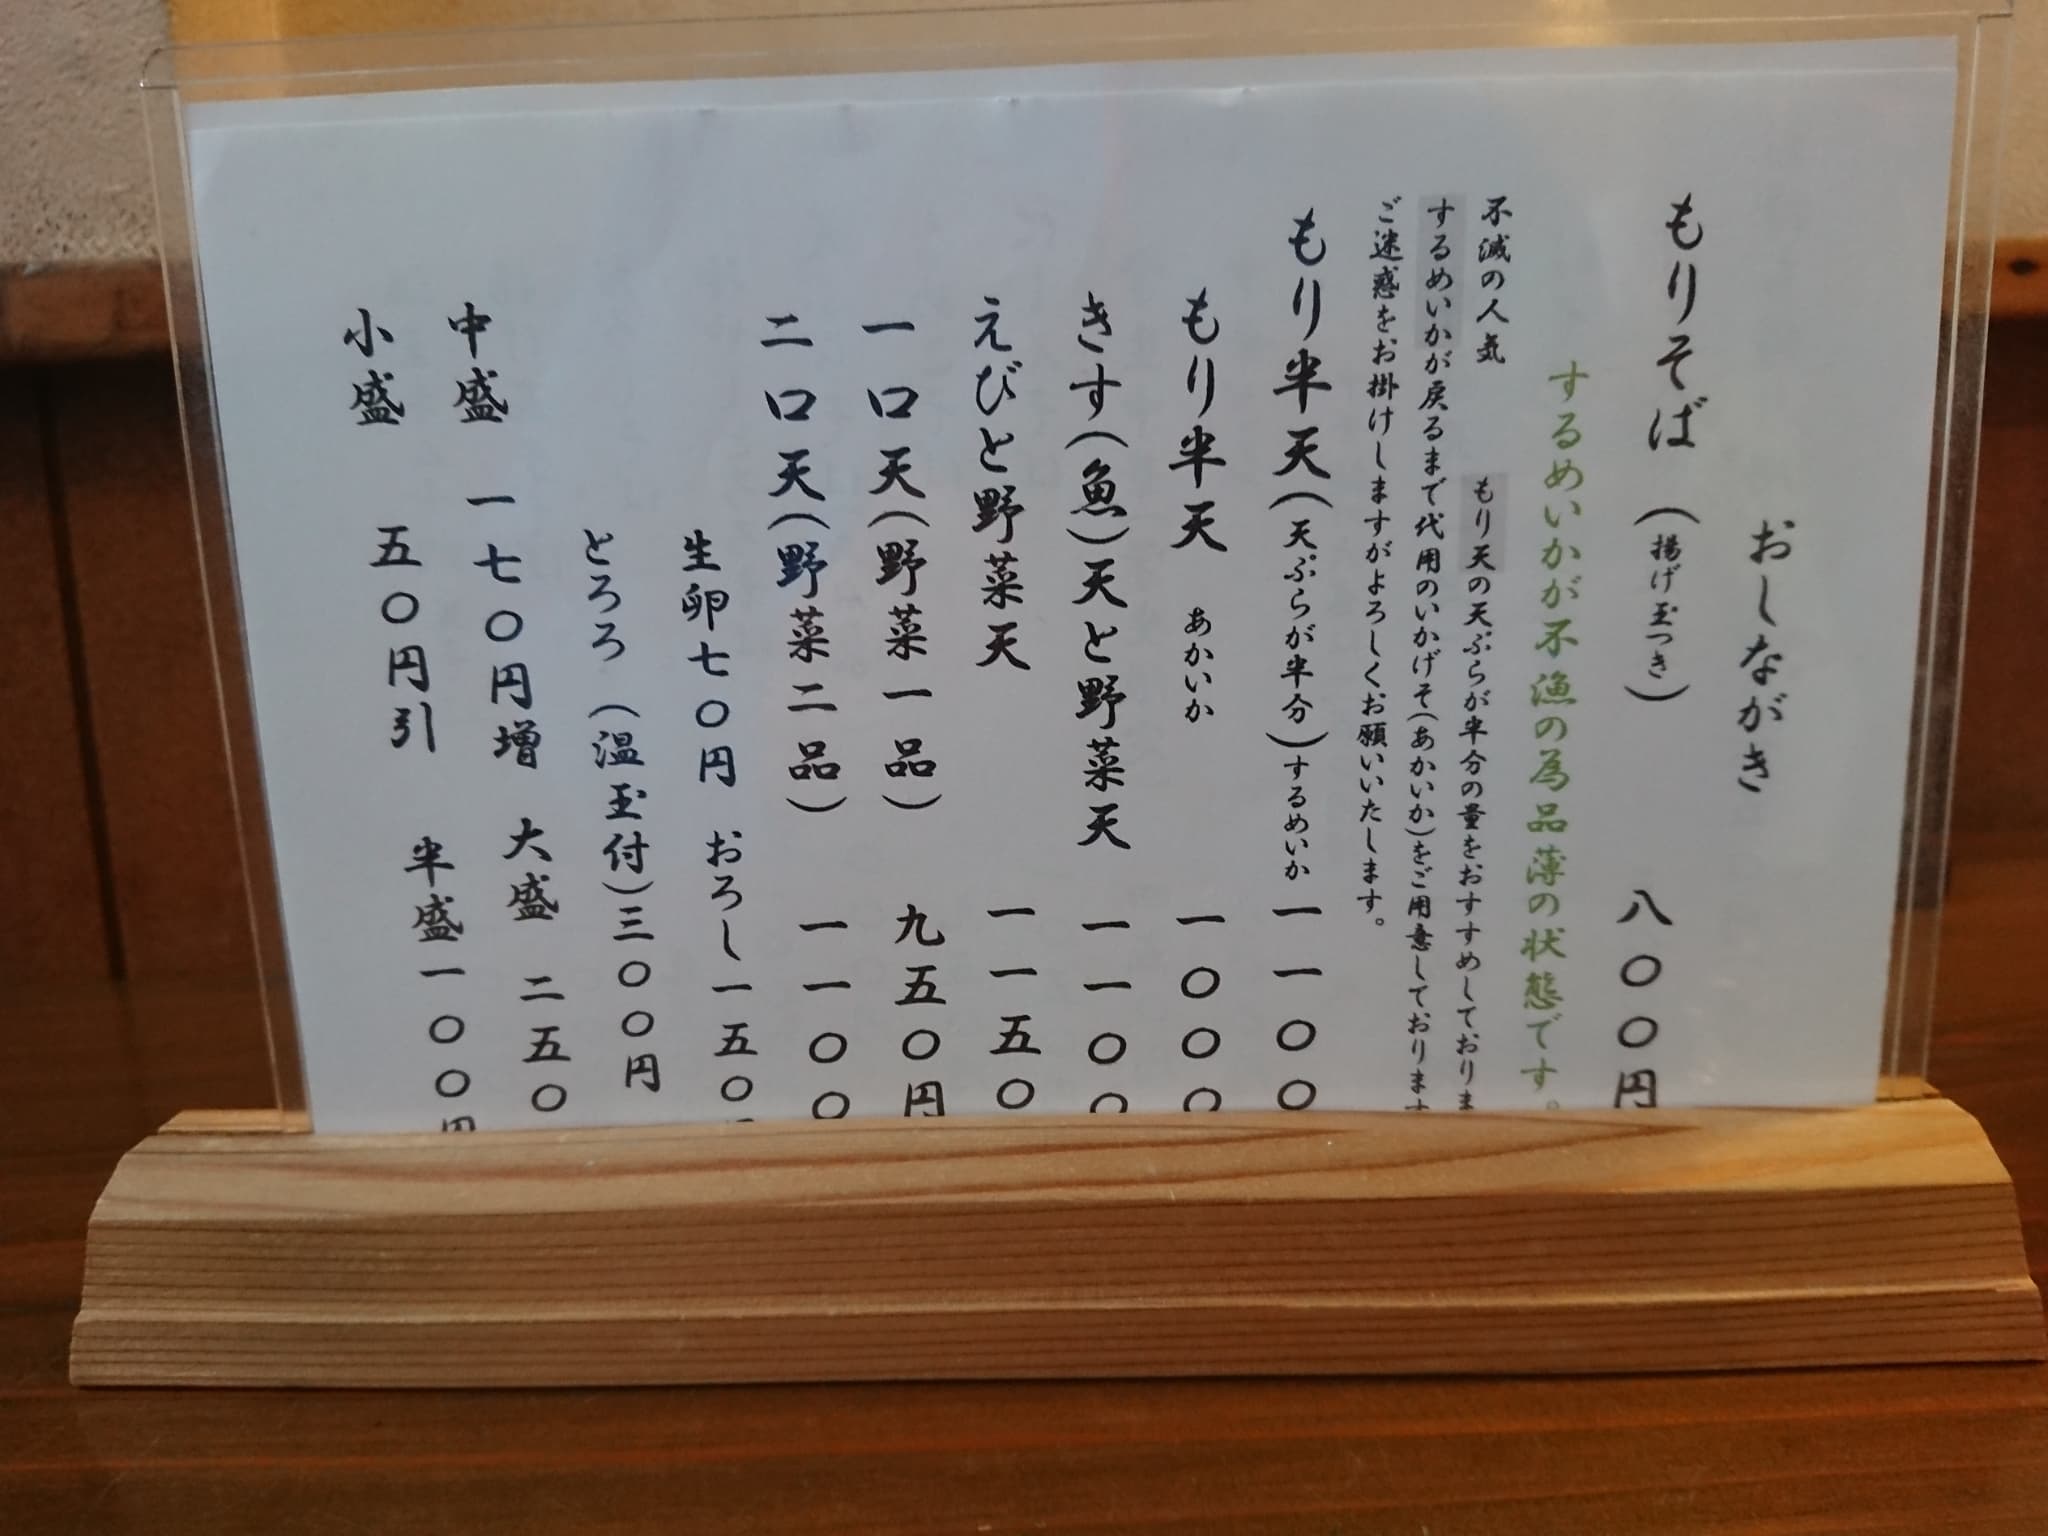 おしながき
もりそば（揚げ玉つき）　八〇〇円
するめいかが不漁の為品薄の状態です。
不滅の人気　もり天の天ぷらが半分の量をおすすめしておりま
するめいかが戻るまで代用のいかげそ（あかいか）をご用意しております
ご迷惑をお掛けしますがよろしくお願いいたします。
もり半天（天ぷらが半分）するめいか　一一〇〇
もり半天　あかいか　一〇〇〇
きす（魚）天と野菜天　一一〇〇
えびと野菜天　一一五〇
一口天（野菜一品）　九五〇円
二口天（野菜二品）　一一〇〇
生卵七〇円　おろし一五〇
とろろ（温玉付）三〇〇円
中盛　一七〇円増　大盛　二五〇
小盛　五〇円引　半盛一〇〇円